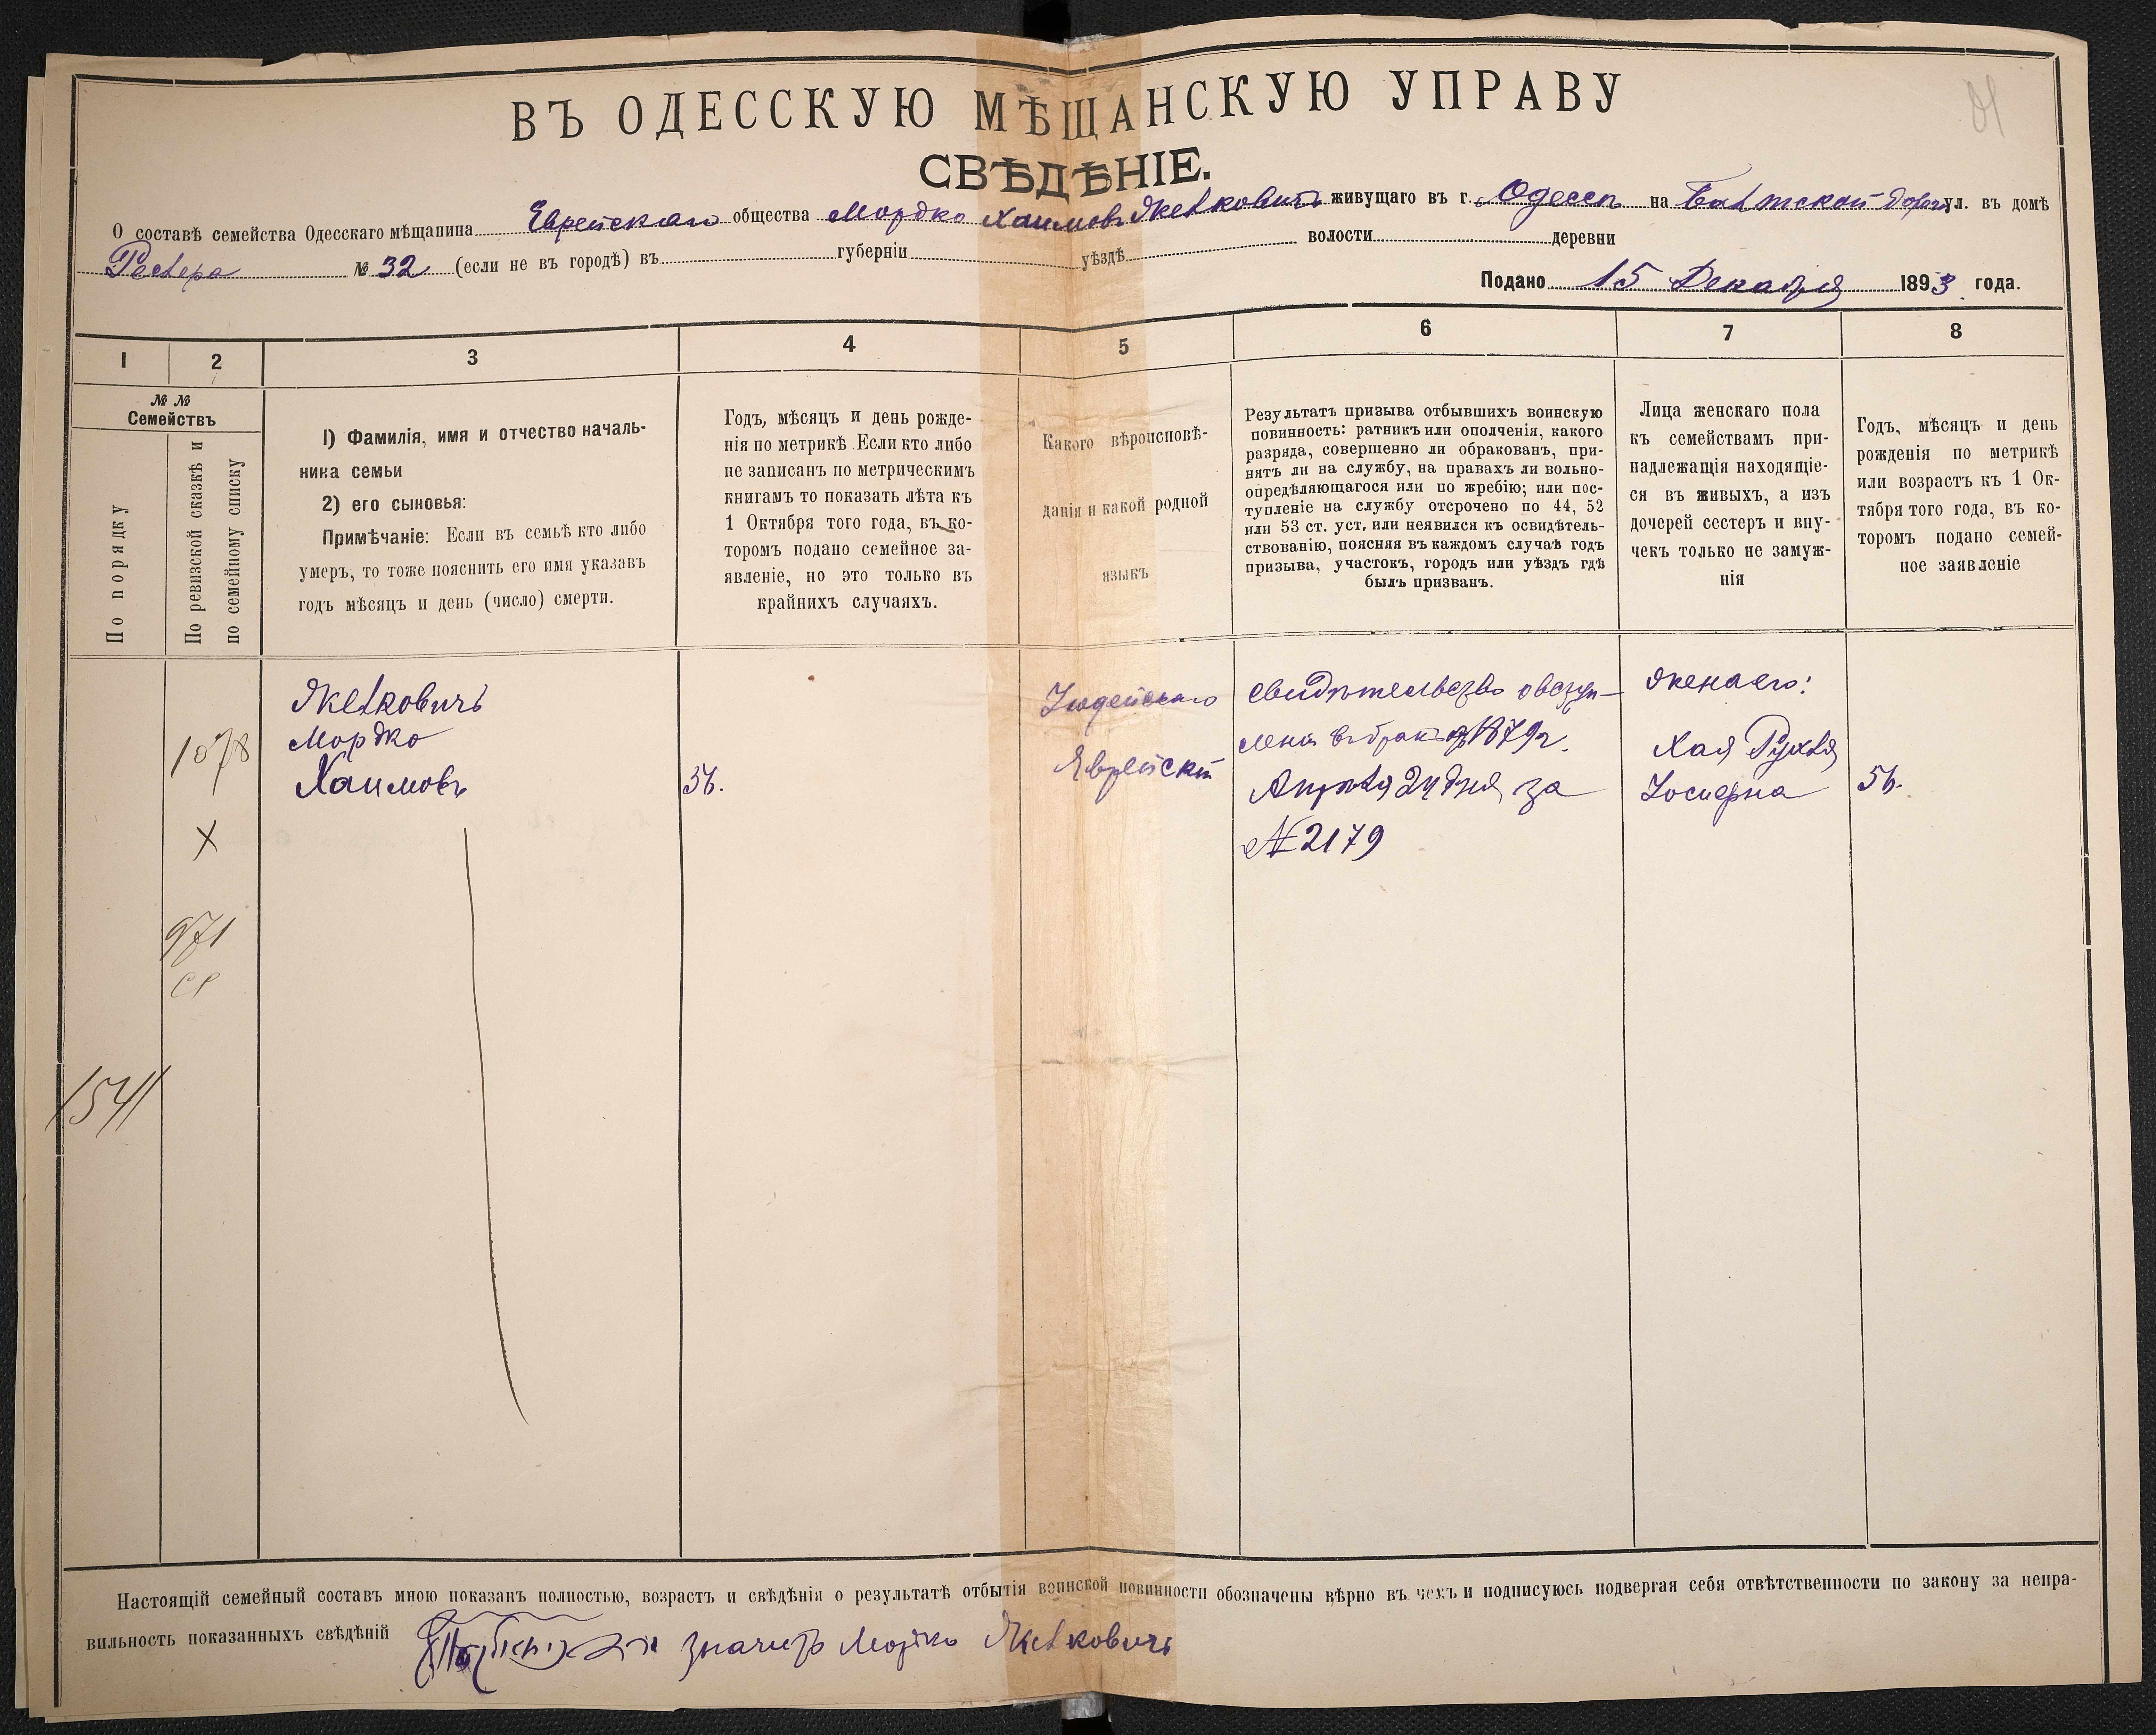 ВЪ ОДЕССКУЮ МѢЩАНСКУЮ УПРАВУ
СВѢДѢНІЕ.
О составѣ семейства Одесскаго мѣщанина Еврейскаго общества Мордко Хаимовъ Желковичъ живущаго въ г. Одессѣ на Балтской дорогѣ ул. въ домѣ
№ 32 (если не въ городѣ) въ губерніи уѣздѣ волости деревни
Подано 15 Декабря 1893 года.
1 2 3 4 5 6 7 8
№ №
Семействъ
По порядку
По ревизской сказкѣ и
по семейному списку
1) Фамилія, имя и отчество началь-
ника семьи
2) его сыновья:
Примѣчаніе: Если въ семьѣ кто либо
умеръ, то тоже пояснить его имя указавъ
годъ мѣсяцъ и день (число) смерти.
Годъ, мѣсяцъ и день рожде-
нія по метрикѣ. Если кто либо
не записанъ по метрическимъ
книгамъ то показать лѣта къ
1 Октября того года, въ ко-
торомъ подано семейное за-
явленіе, но это только въ
крайнихъ случаяхъ.
Какого вѣроисповѣ-
данія и какой родной
языкъ
Результатъ призыва отбывшихъ воинскую
повинность: ратникъ или ополченія, какого
разряда, совершенно ли обракованъ, при-
нятъ ли на службу, на правахъ ли вольно-
опредѣляющагося или по жребію; или пос-
тупленіе на службу отсрочено по 44, 52
или 53 ст. уст. или неявился къ освидѣтель-
ствованію, поясняя въ каждомъ случаѣ годъ
призыва, участокъ, городъ или уѣздъ гдѣ
былъ призванъ.
Лица женскаго пола
къ семействамъ при-
надлежащія находящіе-
ся въ живыхъ, а изъ
дочерей сестеръ и вну-
чекъ только не замуж-
нія
Годъ, мѣсяцъ и день
рожденія по метрикѣ
или возрастъ къ 1 Ок-
тября того года, въ ко-
торомъ подано семей-
ное заявленіе
1078
X
971
1541
Желковичъ
Мордко
Хаимовъ
56.
Іюдейскаго
Еврейскій
свидѣтельство о всту-
леніи въ бракъ 1879 г.
Апрѣля 24 дня, за
№ 2179
Жена его:
Хая Рухля
Іосифна
56.
Настоящій семейный составъ мною показанъ полностью, возрастъ и свѣдѣнія о результатѣ отбытія воинской повинности обозначены вѣрно въ чемъ и подписуюсь подвергая себя отвѣтственности по закону за непра-
вильность показанныхъ свѣдѣній значитъ Мортко Желковичъ